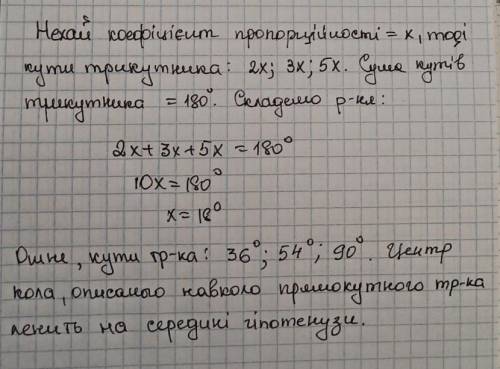 Нехай коефіцієнт пропорційності = x, тоді
кути трикутника: 2x; 3x; 5x. Сума кутів
трикутника = 180°. Складемо р-ня:
2x+3x+5x = 180°
10x = 180°
x = 18°
Отже, кути тр-ка: 36°; 54°; 90°. Центр
кола, описаного навколо прямокутного тр-ка
лежить на середині гіпотенузи.